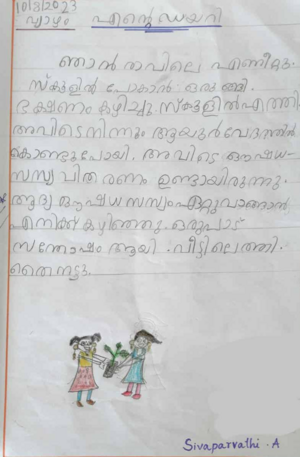 10/8/2023
വ്യാഴം എന്റെ ഡയറി
ഞാൻ രാവിലെ എണീറ്റു.
സ്കൂളിൽ പോകാൻ ഒരുങ്ങി.
ഭക്ഷണം കഴിച്ചു. സ്കൂളിൽ എത്തി
അവിടെ നിന്നും ആയുർവേദത്തിൽ
കൊണ്ടുപോയി. അവിടെ ഔഷധ
സസ്യ വിതരണം ഉണ്ടായിരുന്നു.
ആദ്യ ഔഷധ സസ്യം ഏറ്റുവാങ്ങാൻ
എനിക്ക് കഴിഞ്ഞു. ഒരുപാട്
സന്തോഷം ആയി. വീട്ടിലെത്തി.
തൈ നട്ടു.
Sivaparvathi . A